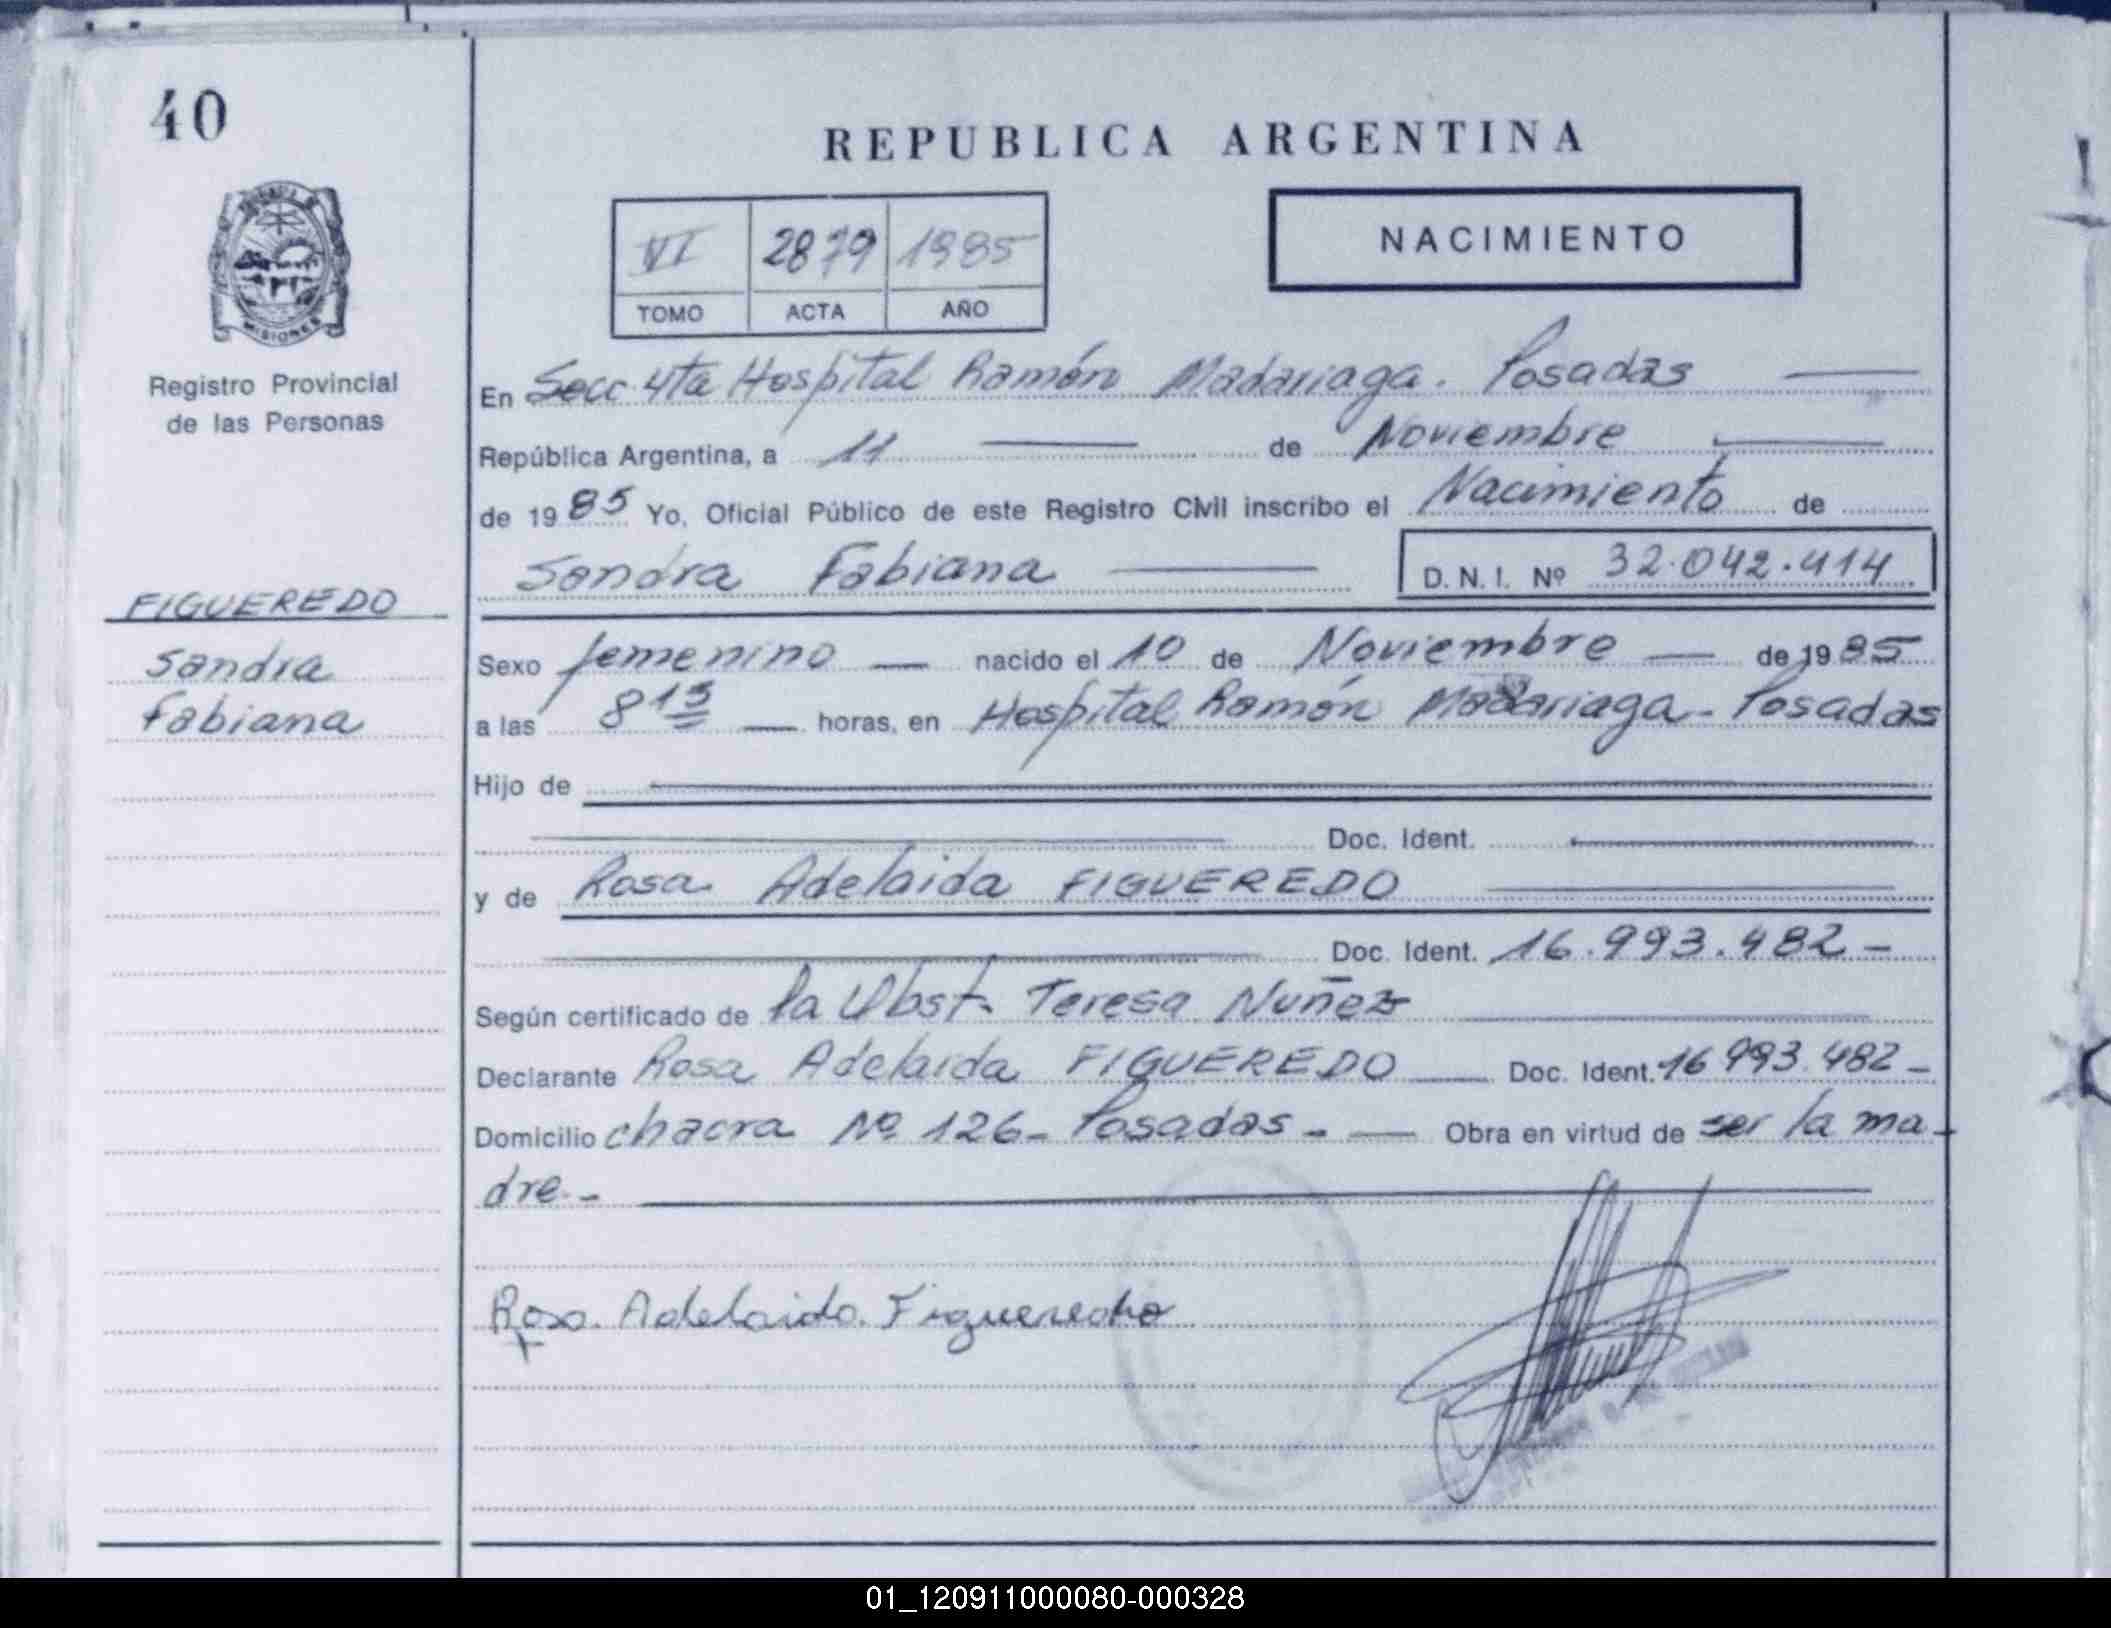 40
REPUBLICA ARGENTINA
VI 2879 1985
TOMO ACTA AÑO
NACIMIENTO
MISIONES
Registro Provincial
de las Personas
FIGUEREDO
Sandra
Fabiana
En Secc 4ta Hospital Ramón Madariaga. Posadas
República Argentina, a 11 de Noviembre
de 1985 Yo, Oficial Público de este Registro Civil inscribo el Nacimiento de
Sandra Fabiana D.N.I. Nº 32.042.414
Sexo femenino — nacido el 10 de Noviembre — de 1985
a las 8 15 — horas, en Hospital Ramón Madariaga - Posadas
Hijo de
Doc. Ident.
y de Rosa Adelaida FIGUEREDO
Doc. Ident. 16.993.482 -
Según certificado de la Obst. Teresa Nuñez
Declarante Rosa Adelaida FIGUEREDO — Doc. Ident. 16 993.482 -
Domicilio chacra Nº 126 - Posadas - — Obra en virtud de ser la ma-
dre. -
Rosa Adelaida Figueredo
01_120911000080-000328